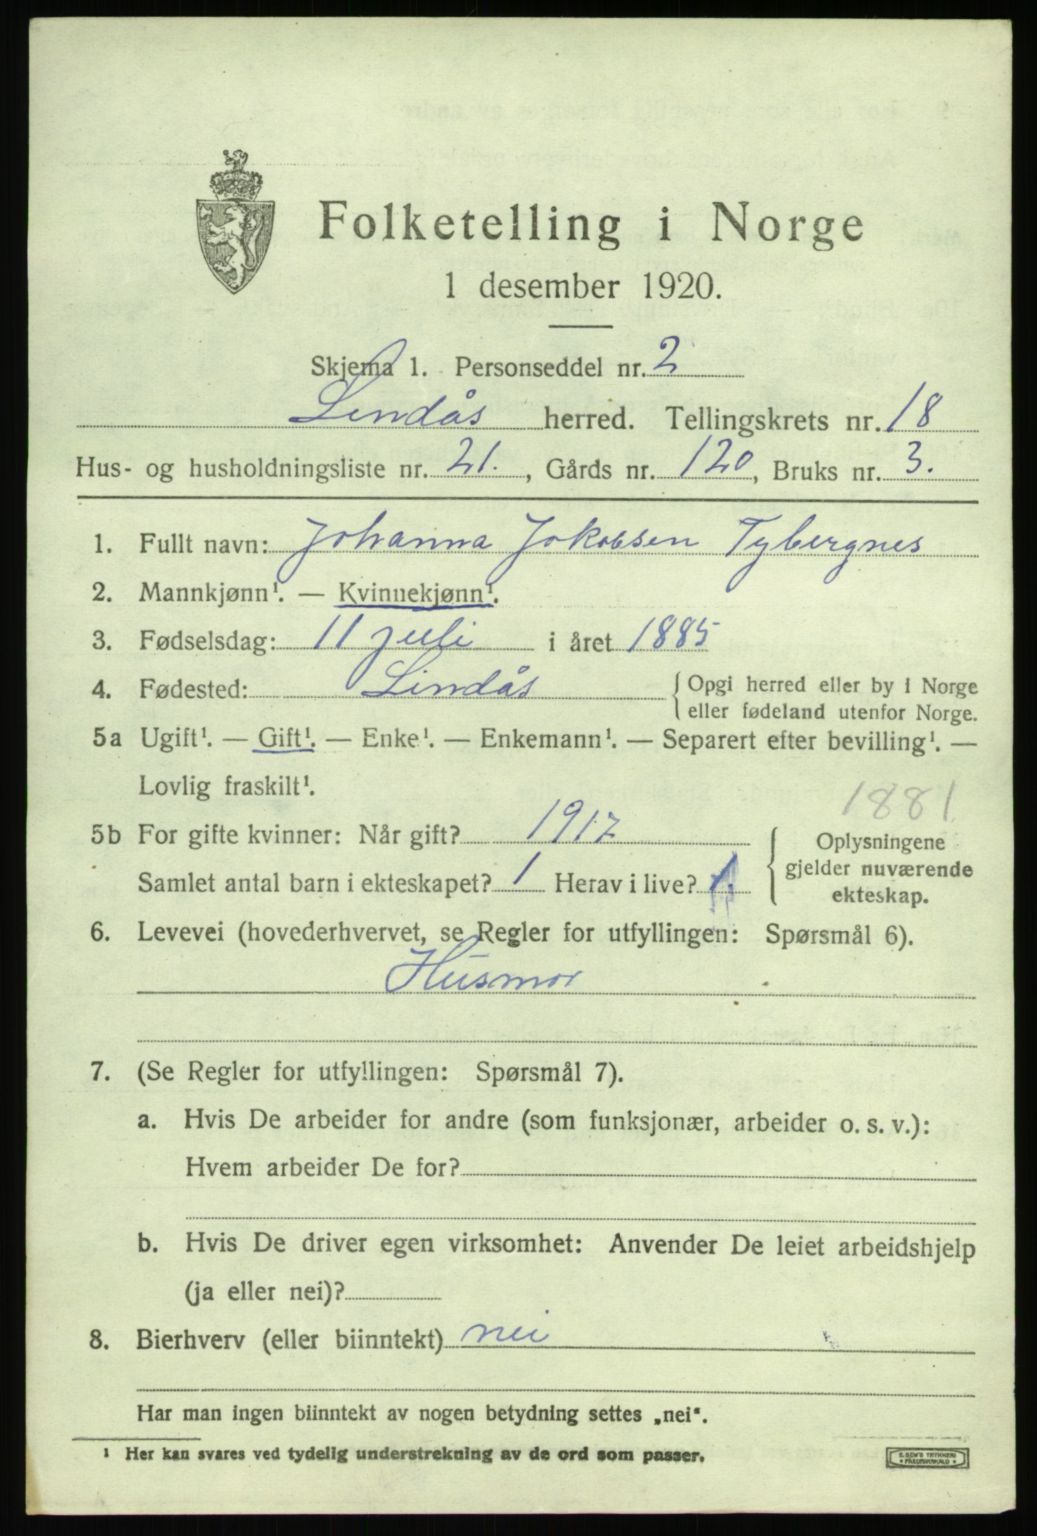 Folketelling i Norge
1 desember 1920.
Skjema 1. Personseddel nr. 2
Lindås herred. Tellingskrets nr. 18
Hus- og husholdningsliste nr. 21. , Gårds nr. 120, Bruks nr. 3.
1. Fullt navn: Johanna Jakobsen Tybergnes
2. Mannkjønn¹. — Kvinnekjønn¹.
3. Fødselsdag: 11 juli i året 1885
4. Fødested: Lindås { Opgi herred eller by i Norge
eller fødeland utenfor Norge.
5a Ugift¹. — Gift¹. — Enke¹. — Enkemann¹. — Separert efter bevilling¹. —
Lovlig fraskilt¹.
1881
5b For gifte kvinner: Når gift? 1917
Samlet antal barn i ekteskapet? 1 Herav i live? 1.
{ Oplysningene
gjelder nuværende
ekteskap.
6. Levevei (hovederhvervet, se Regler for utfyllingen: Spørsmål 6).
Husmor
7. (Se Regler for utfyllingen: Spørsmål 7).
a. Hvis De arbeider for andre (som funksjonær, arbeider o. s. v.):
Hvem arbeider De for?
b. Hvis De driver egen virksomhet: Anvender De leiet arbeidshjelp
(ja eller nei)?
8. Bierhverv (eller biinntekt) nei
Har man ingen biinntekt av nogen betydning settes „nei“.
¹ Her kan svares ved tydelig understrekning av de ord som passer.